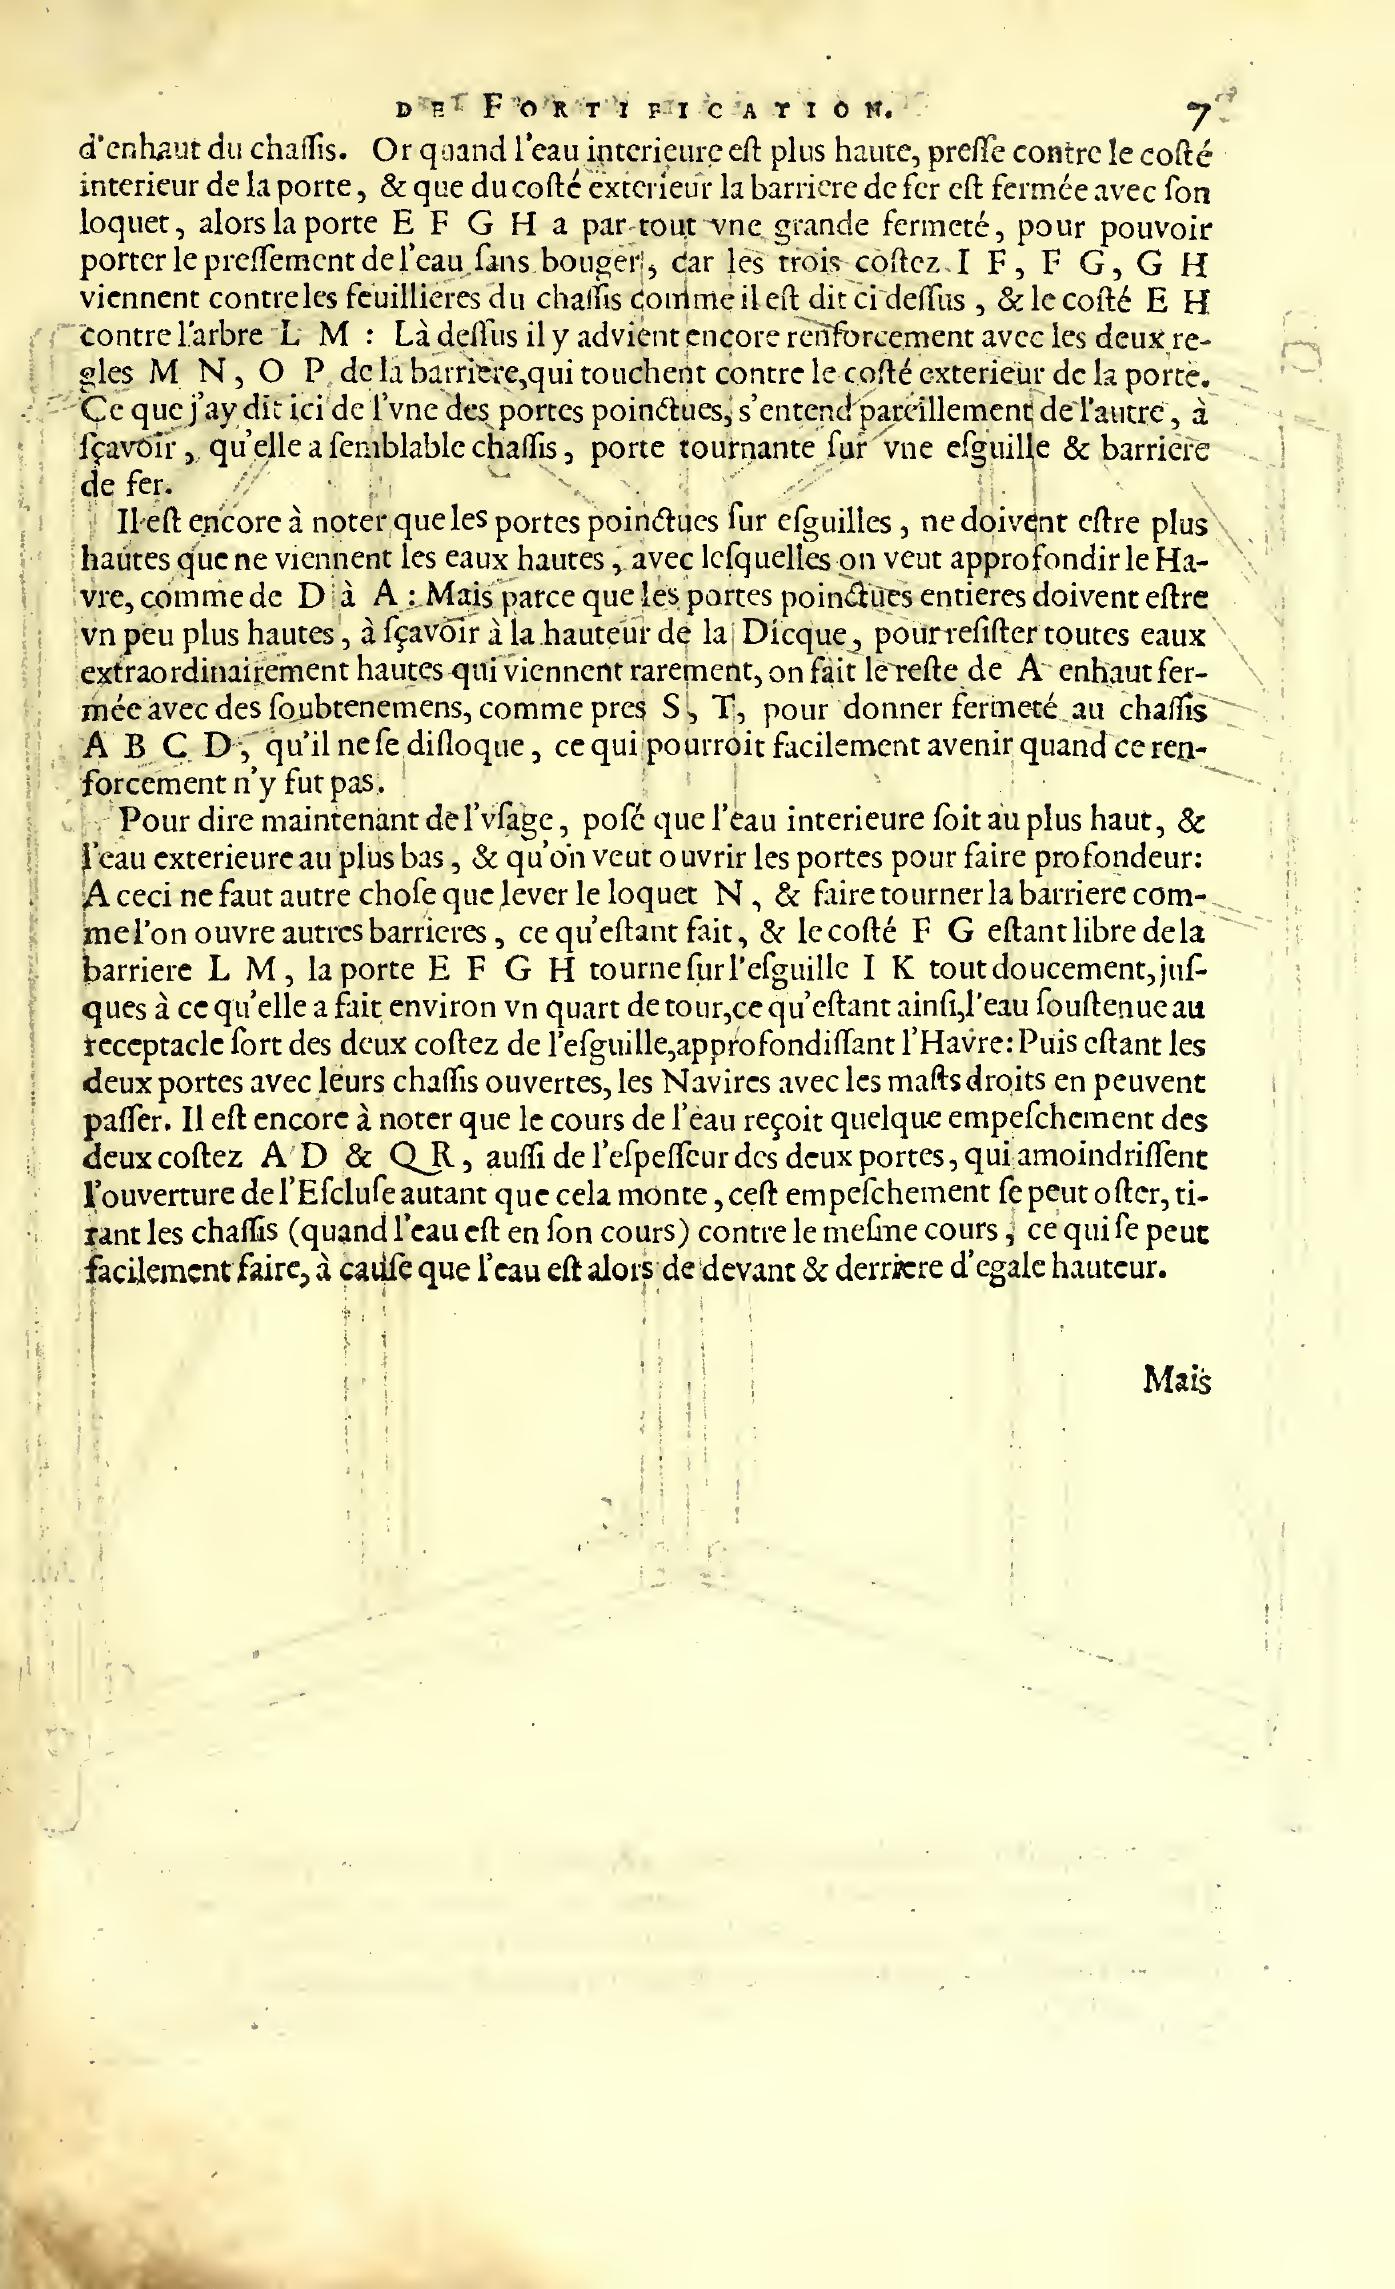 DE FORTIFICATION. 7
d'enhaut du chaſſis. Or quand l'eau interieure eſt plus haute, preſſe contre le coſté
interieur de la porte, & que du coſté exterieur la barriere de fer eſt fermée avec ſon
loquet, alors la porte E F G H a par tout vne grande fermeté, pour pouvoir
porter le preſſement de l'eau ſans bouger, car les trois coſtez I F, F G, G H
viennent contre les feuillieres du chaſſis comme il eſt dit ci deſſus, & le coſté E H
contre l'arbre L M : Là deſſus il y advient encore renforcement avec les deux re-
gles M N, O P de la barriere, qui touchent contre le coſté exterieur de la porte.
Ce que j'ay dit ici de l'vne des portes poinctues, s'entend pareillement de l'autre, à
ſçavoir, qu'elle a ſemblable chaſſis, porte tournante ſur vne eſguille & barriere
de fer.
Il eſt encore à noter que les portes poinctues ſur eſguilles, ne doivent eſtre plus
hautes que ne viennent les eaux hautes, avec leſquelles on veut approfondir le Ha-
vre, comme de D à A : Mais parce que les portes poinctues entieres doivent eſtre
vn peu plus hautes, à ſçavoir à la hauteur de la Dicque, pour reſiſter toutes eaux
extraordinairement hautes qui viennent rarement, on fait le reſte de A enhaut fer-
mée avec des ſoubtenemens, comme pres S, T, pour donner fermeté au chaſſis
A B C D, qu'il ne ſe diſloque, ce qui pourroit facilement avenir quand ce ren-
forcement n'y fut pas.
Pour dire maintenant de l'vſage, poſé que l'eau interieure ſoit au plus haut, &
l'eau exterieure au plus bas, & qu'on veut ouvrir les portes pour faire profondeur:
A ceci ne faut autre choſe que lever le loquet N, & faire tourner la barriere com-
me l'on ouvre autres barrieres, ce qu'eſtant fait, & le coſté F G eſtant libre de la
barriere L M, la porte E F G H tourne ſur l'eſguille I K tout doucement, juſ-
ques à ce qu'elle a fait environ vn quart de tour, ce qu'eſtant ainſi, l'eau ſouſtenue au
receptacle ſort des deux coſtez de l'eſguille, approfondiſſant l'Havre: Puis eſtant les
deux portes avec leurs chaſſis ouvertes, les Navires avec les maſts droits en peuvent
paſſer. Il eſt encore à noter que le cours de l'eau reçoit quelque empeſchement des
deux coſtez A D & Q R, auſſi de l'eſpeſſeur des deux portes, qui amoindriſſent
l'ouverture de l'Eſcluſe autant que cela monte, ceſt empeſchement ſe peut oſter, ti-
rant les chaſſis (quand l'eau eſt en ſon cours) contre le meſme cours, ce qui ſe peut
facilement faire, à cauſe que l'eau eſt alors de devant & derriere d'egale hauteur.
Mais